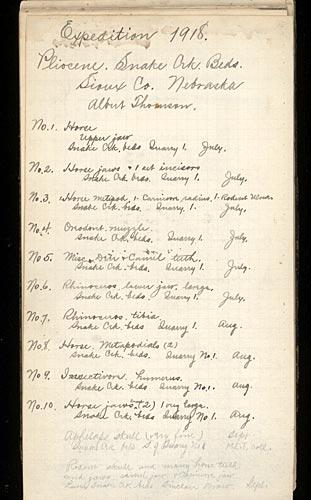 Expedition 1918.
Pliocene. Snake Crk. Beds.
Sioux Co. Nebraska
Albert Thomson.
No. 1. Horse
upper jaw
Snake Crk. beds Quarry 1. July.
No. 2. Horse jaws & 1 set incisors
Snake Crk. beds. Quarry 1. July.
No. 3. Horse metapod, 1 Carnivore radius, 1 Rodent
Snake Crk. beds. Quarry 1. July.
No. 4. Oreodont muzzle.
Snake Crk. beds. Quarry 1. July.
No 5. Misc. & Camel teeth.
Snake Crk. beds. Quarry 1. July.
No. 6. Rhinoceros lower jaw, large.
Snake Crk. beds, Quarry 1. July.
No. 7. Rhinoceros, tibia.
Snake Crk. beds Quarry 1. Aug.
No. 8. Horse. Metapodials (2)
Snake Crk. beds. Quarry No. 1. Aug.
No 9. Insectivore humerus.
Snake Crk. beds, Quarry No. 1. Aug.
No. 10. Horse jaws (2) 1 very large.
Snake Crk. beds Quarry No. 1. Aug.
Aphelops skull (very fine) Sept
Snake Crk. beds. Quarry No 1
skull and many horse teeth
and jaws,
Snake Crk beds Sinclair Sept.